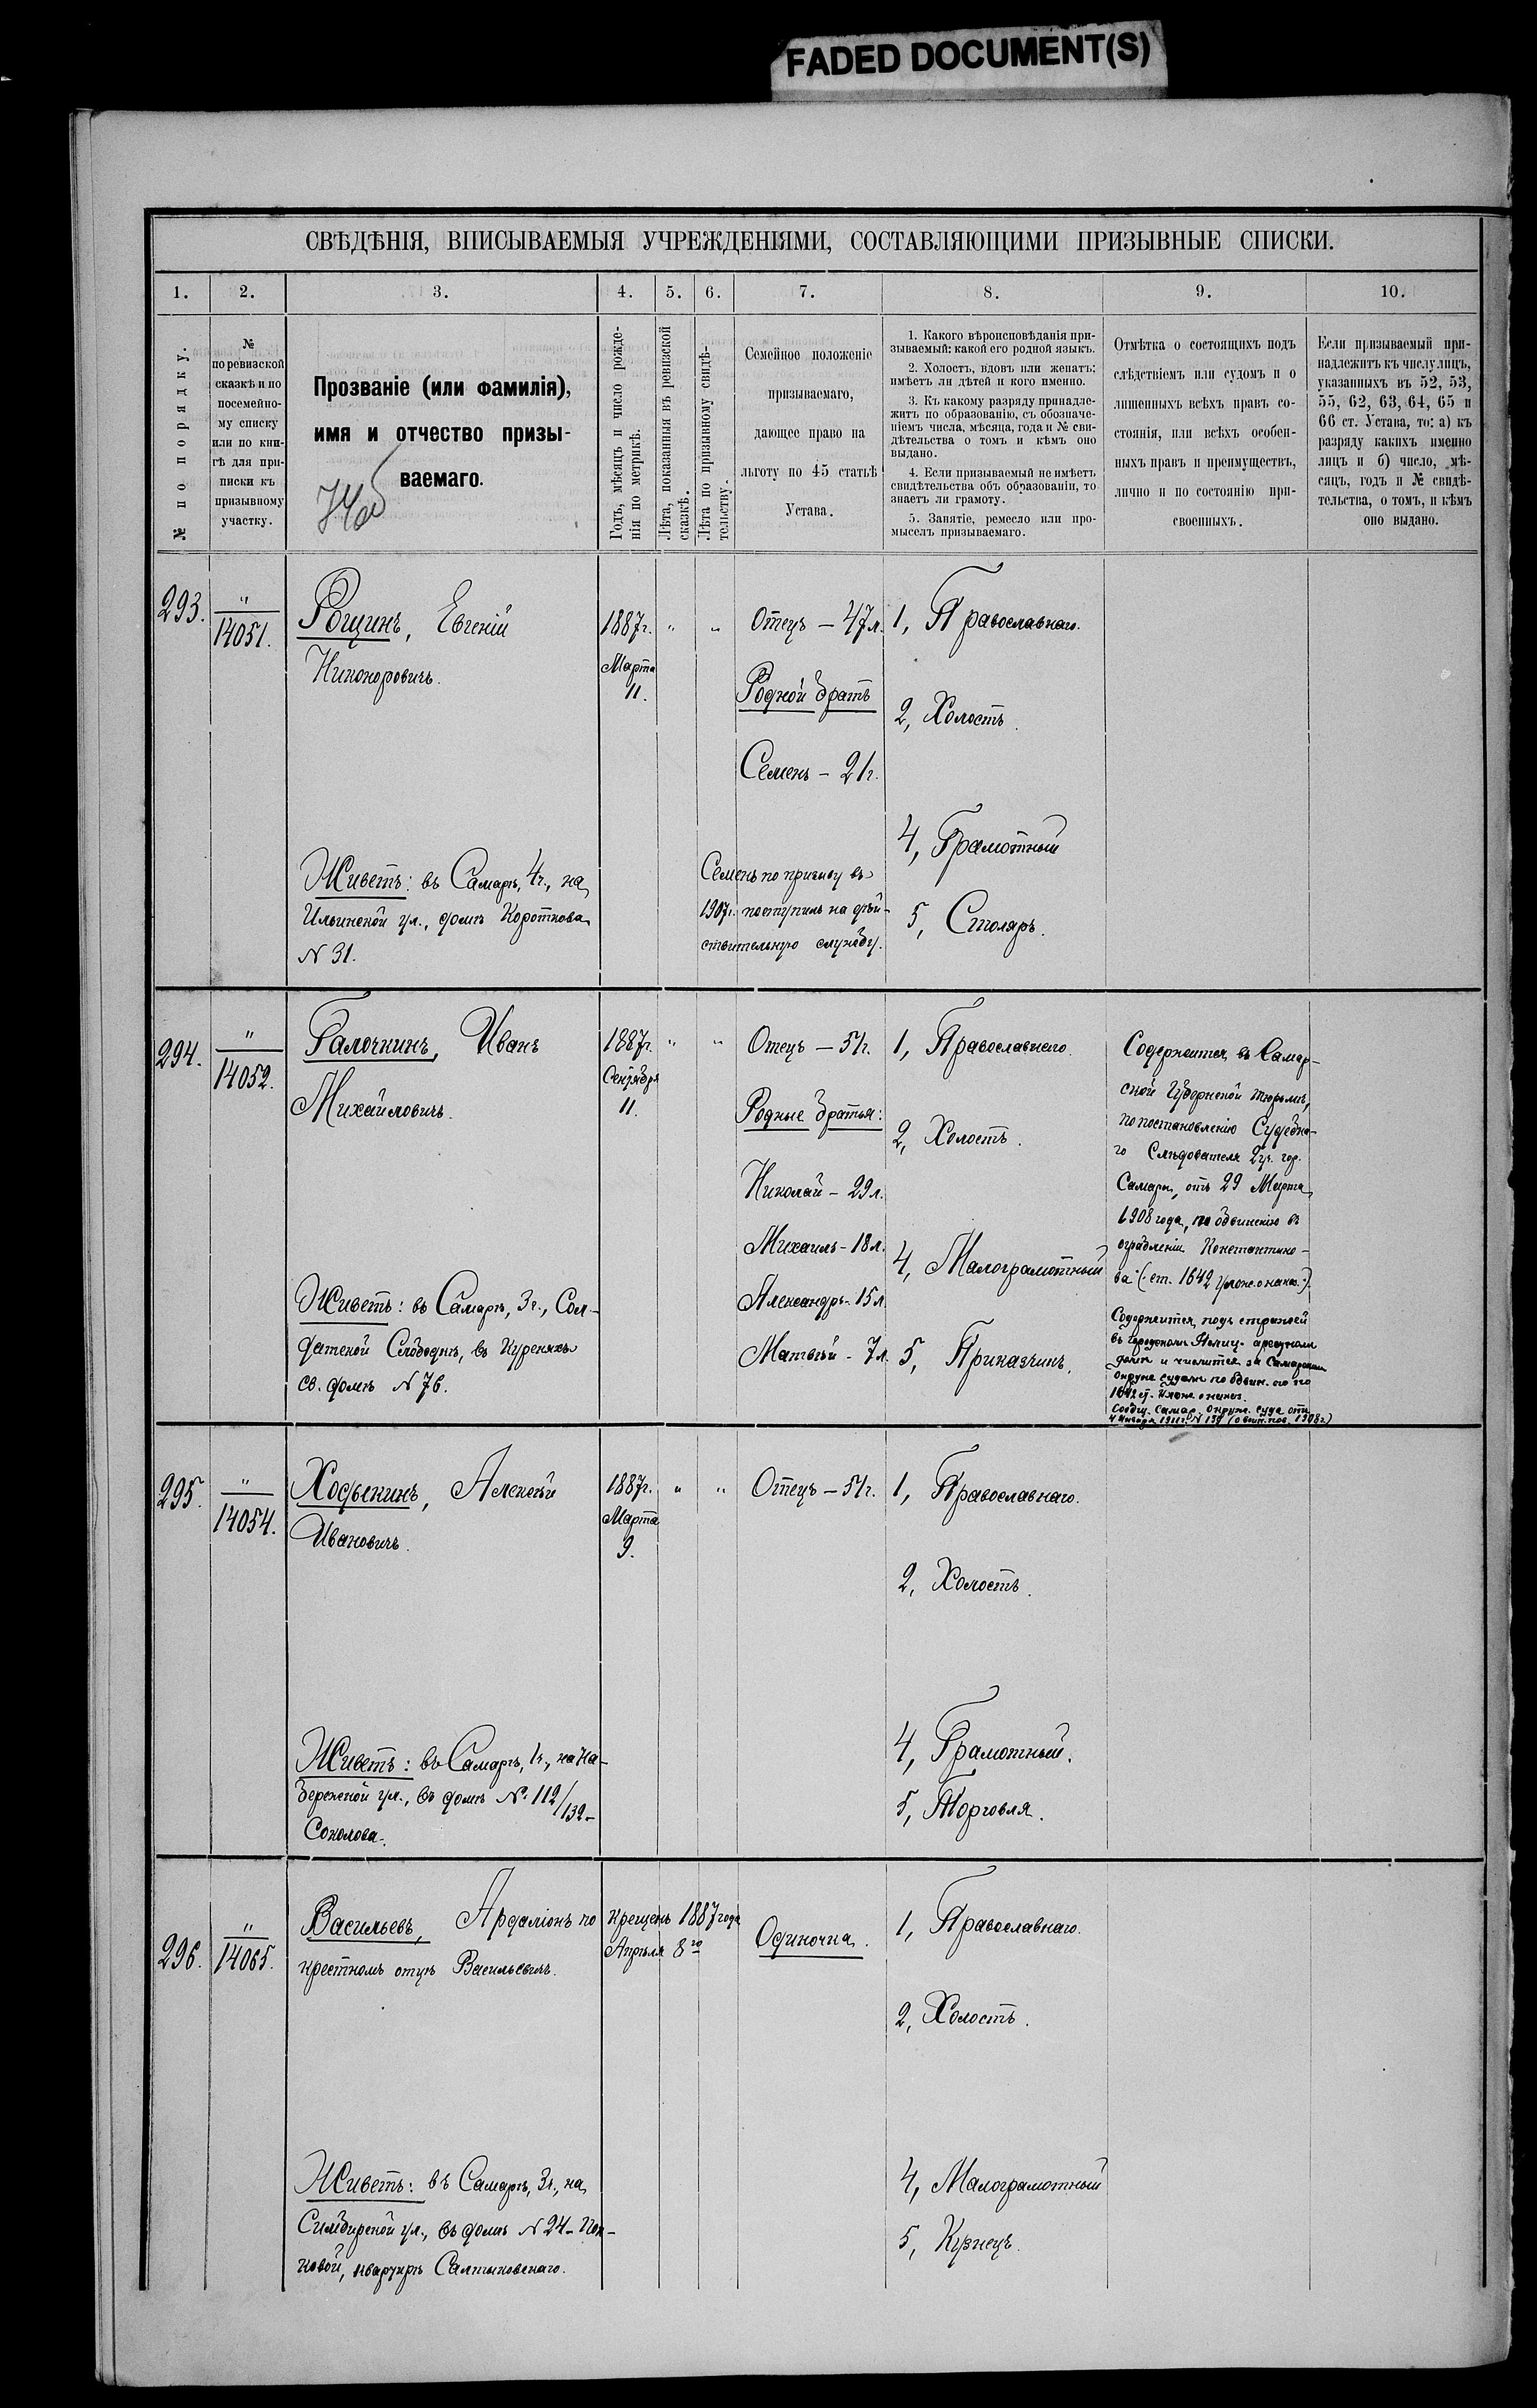 FADED DOCUMENT(S)
СВѢДѢНІЯ, ВПИСЫВАЕМЫЯ УЧРЕЖДЕНІЯМИ, СОСТАВЛЯЮЩИМИ ПРИЗЫВНЫЕ СПИСКИ.
1. 2. 3. 4. 5. 6. 7. 8. 9. 10.
№ по порядку.
№
по ревизской
сказкѣ и по
посемейно-
му списку
или по кни-
гѣ для при-
писки къ
призывному
участку.
Прозваніе (или фамилія),
имя и отчество призы-
ваемаго.
Годъ, мѣсяцъ и число рожде-
нія по метрикѣ.
Лѣта, показанныя въ ревизской
сказкѣ.
Лѣта по призывному свидѣ-
тельству.
Семейное положеніе
призываемаго,
дающее право на
льготу по 45 статьѣ
Устава.
1. Какого вѣроисповѣданія при-
зываемый; какой его родной языкъ.
2. Холостъ, вдовъ или женатъ;
имѣетъ ли дѣтей и кого именно.
3. Къ какому разряду принадле-
житъ по образованію, съ обозначе-
ніемъ числа, мѣсяца, года и № сви-
дѣтельства о томъ и кѣмъ оно
выдано.
4. Если призываемый не имѣетъ
свидѣтельства объ образованіи, то
знаетъ ли грамоту.
5. Занятіе, ремесло или про-
мыселъ призываемаго.
Отмѣтка о состоящихъ подъ
слѣдствіемъ или судомъ и о
лишенныхъ всѣхъ правъ со-
стоянія, или всѣхъ особен-
ныхъ правъ и преимуществъ,
лично и по состоянію при-
своенныхъ.
Если призываемый при-
надлежитъ къ числу лицъ,
указанныхъ въ 52, 53,
55, 62, 63, 64, 65 и
66 ст. Устава, то: а) къ
разряду какихъ именно
лицъ и б) число, мѣ-
сяцъ, годъ и № свидѣ-
тельства, о томъ, и кѣмъ
оно выдано.
293.
"
14051.
Рощинъ, Евгеній
Никоноровичъ.
Живетъ: въ Самарѣ, 4ч., на
Ильинской ул., домъ Короткова
N 31.
1887г. " "
Марта
11.
Отецъ – 47л.
Родной братъ
Семенъ – 21г.
Семенъ по призыву въ
1907г. поступилъ на дѣй-
ствительную службу.
1, Православнаго.
2, Холостъ.
4, Грамотный
5, Столяръ.
294.
"
14052.
Галочкинъ, Иванъ
Михайловичъ.
Живетъ: въ Самарѣ, 3ч., Сол-
датской Слободкѣ, въ Куреняхъ
св. домъ N 76.
1887г. " "
Сентября
11.
Отецъ – 51г.
Родные братья:
Николай – 29л.
Михаилъ – 18л.
Александръ – 15л.
Матвѣй – 7л.
1, Православнаго.
2, Холостъ.
4, Малограмотный
5, Приказчикъ.
Содержится въ Самар-
ской Губернской тюрьмѣ,
по постановленію Судебна-
го Слѣдователя 2уч. гор.
Самары, отъ 29 Марта
1908 года, по обвиненію въ
ограбленіи Константино-
ва (ст. 1642 улож. о наказ.).
Содержится подъ стражей
въ городскомъ Полиц. арестномъ
домѣ и числится за Самарскимъ
Окружн. судомъ по обвин. его по
1642 ст. Улож. о наказ.
Сообщ. Самар. Окружн. суда отъ
4 Января 1911г. N 139
295.
"
14054.
Ходыкинъ, Алексѣй
Ивановичъ.
Живетъ: въ Самарѣ, 1ч., на На-
бережной ул., въ домѣ № 112/132 –
Соколова.
1887г. " "
Марта
9.
Отецъ – 51г.
1, Православнаго.
2, Холостъ.
4, Грамотный.
5, Торговля.
296.
"
14065.
Васильевъ, Ардаліонъ по
крестномъ отцѣ Васильевичъ.
Живетъ: въ Самарѣ, 3ч., на
Симбирской ул., въ домѣ N 24 – Поп-
ковой, квартирѣ Салтыковскаго.
крещенъ 1887 года
Апрѣля 8го
Одиночка.
1, Православнаго.
2, Холостъ.
4, Малограмотный
5, Кузнецъ.